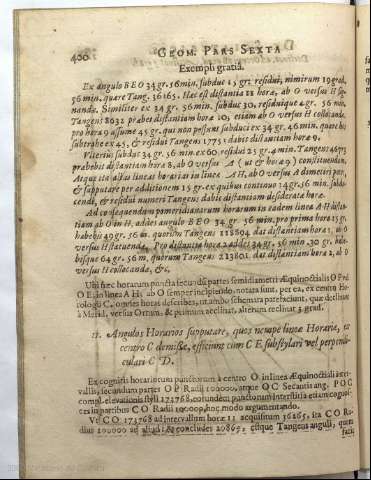 400
GEOM. PARS SEXTA
Exempli gratiâ.
Ex angulo BEO 34 gr. 56 min. subduc 15 gr. residui, nimirum 19 grad.
56 min. quare Tang. 36265. Hæc est distantia 11 horæ, ab O versus H Sig-
nandæ. Similiter ex 34 gr. 56 min. subduc 30, residuique 4 gr. 56 min.
Tangens 8632 præbet distantiam horæ 10, etiam ab O versus H collocandæ.
pro hora 9 assume 45 gr. qui non possunt subduci ex 34 gr. 46 min. quare hos
subtrahe ex 45, & residui Tangens 17751 dabit distantiam horæ 9.
Vlterius subduc 34 gr. 56 min. ex 60. residui 25 gr. 4 min. Tangens 46773
præbebit distantiam horæ 8, ab O versus A (ut & horæ 9) constituendam.
Atque ita actas lineas horarias in linea AH, ab O versus A dimetiri potes,
& supputare per additionem 15 gr. ex quibus continuo 34 gr. 56 min. subdu-
cendi, & residui numeri Tangens dabit distantiam desideratæ horæ.
Ad consequendam pomeridianarum horarum in eadem linea AH distan-
tiam ab O in H, addes angulo BEO 34 gr. 56 min. pro prima hora 15 gr.
habebis 49 gr. 56 m. quorum Tangens 118894 dat distantiam horæ 1, ab O
versus H statuendæ. Pro distantia horæ 2 addes 34 gr. 56 min. 30 gr. ha-
bisque 64 gr. 56 m. quorum Tangens 213801 dat distantiam horæ 2, ab O
versus H collocandæ, &c.
Ubi hæc horarum puncta secundum partes semidiametri Æquinoctialis O P vel
O E, in linea A H, ab O semper incipiendo, notata sunt, per ea, ex centro Ho-
rologii C, omnes horas describes, ut ambo schemata patefaciunt, quæ declinat
à Merid. versus Ortum, & primum acclinat, alterum reclinat 3 grad.
11. Angulos Horarios supputare, quos nempe lineæ Horariæ, ex
centro C demissæ, efficiunt cum C E substylari vel perpendi-
culari C D.
Ex cognitis horariorum punctorum à centro O, in linea Æquinoctiali inter-
vallis, secundum partes O P Radii 100000, atque O C Secantis ang. P O C
compl. elevationis styli 173768, eorundem punctorum interstitia etiam cognos-
ces in partibus C O Radii 100000, hoc modo argumentando.
Ut C O 173768 ad intervallum horæ 11 acquisitum 36265, ita C O Ra-
dius 100000 ad aliud: & concludes 20869, estque Tangens anguli, quem